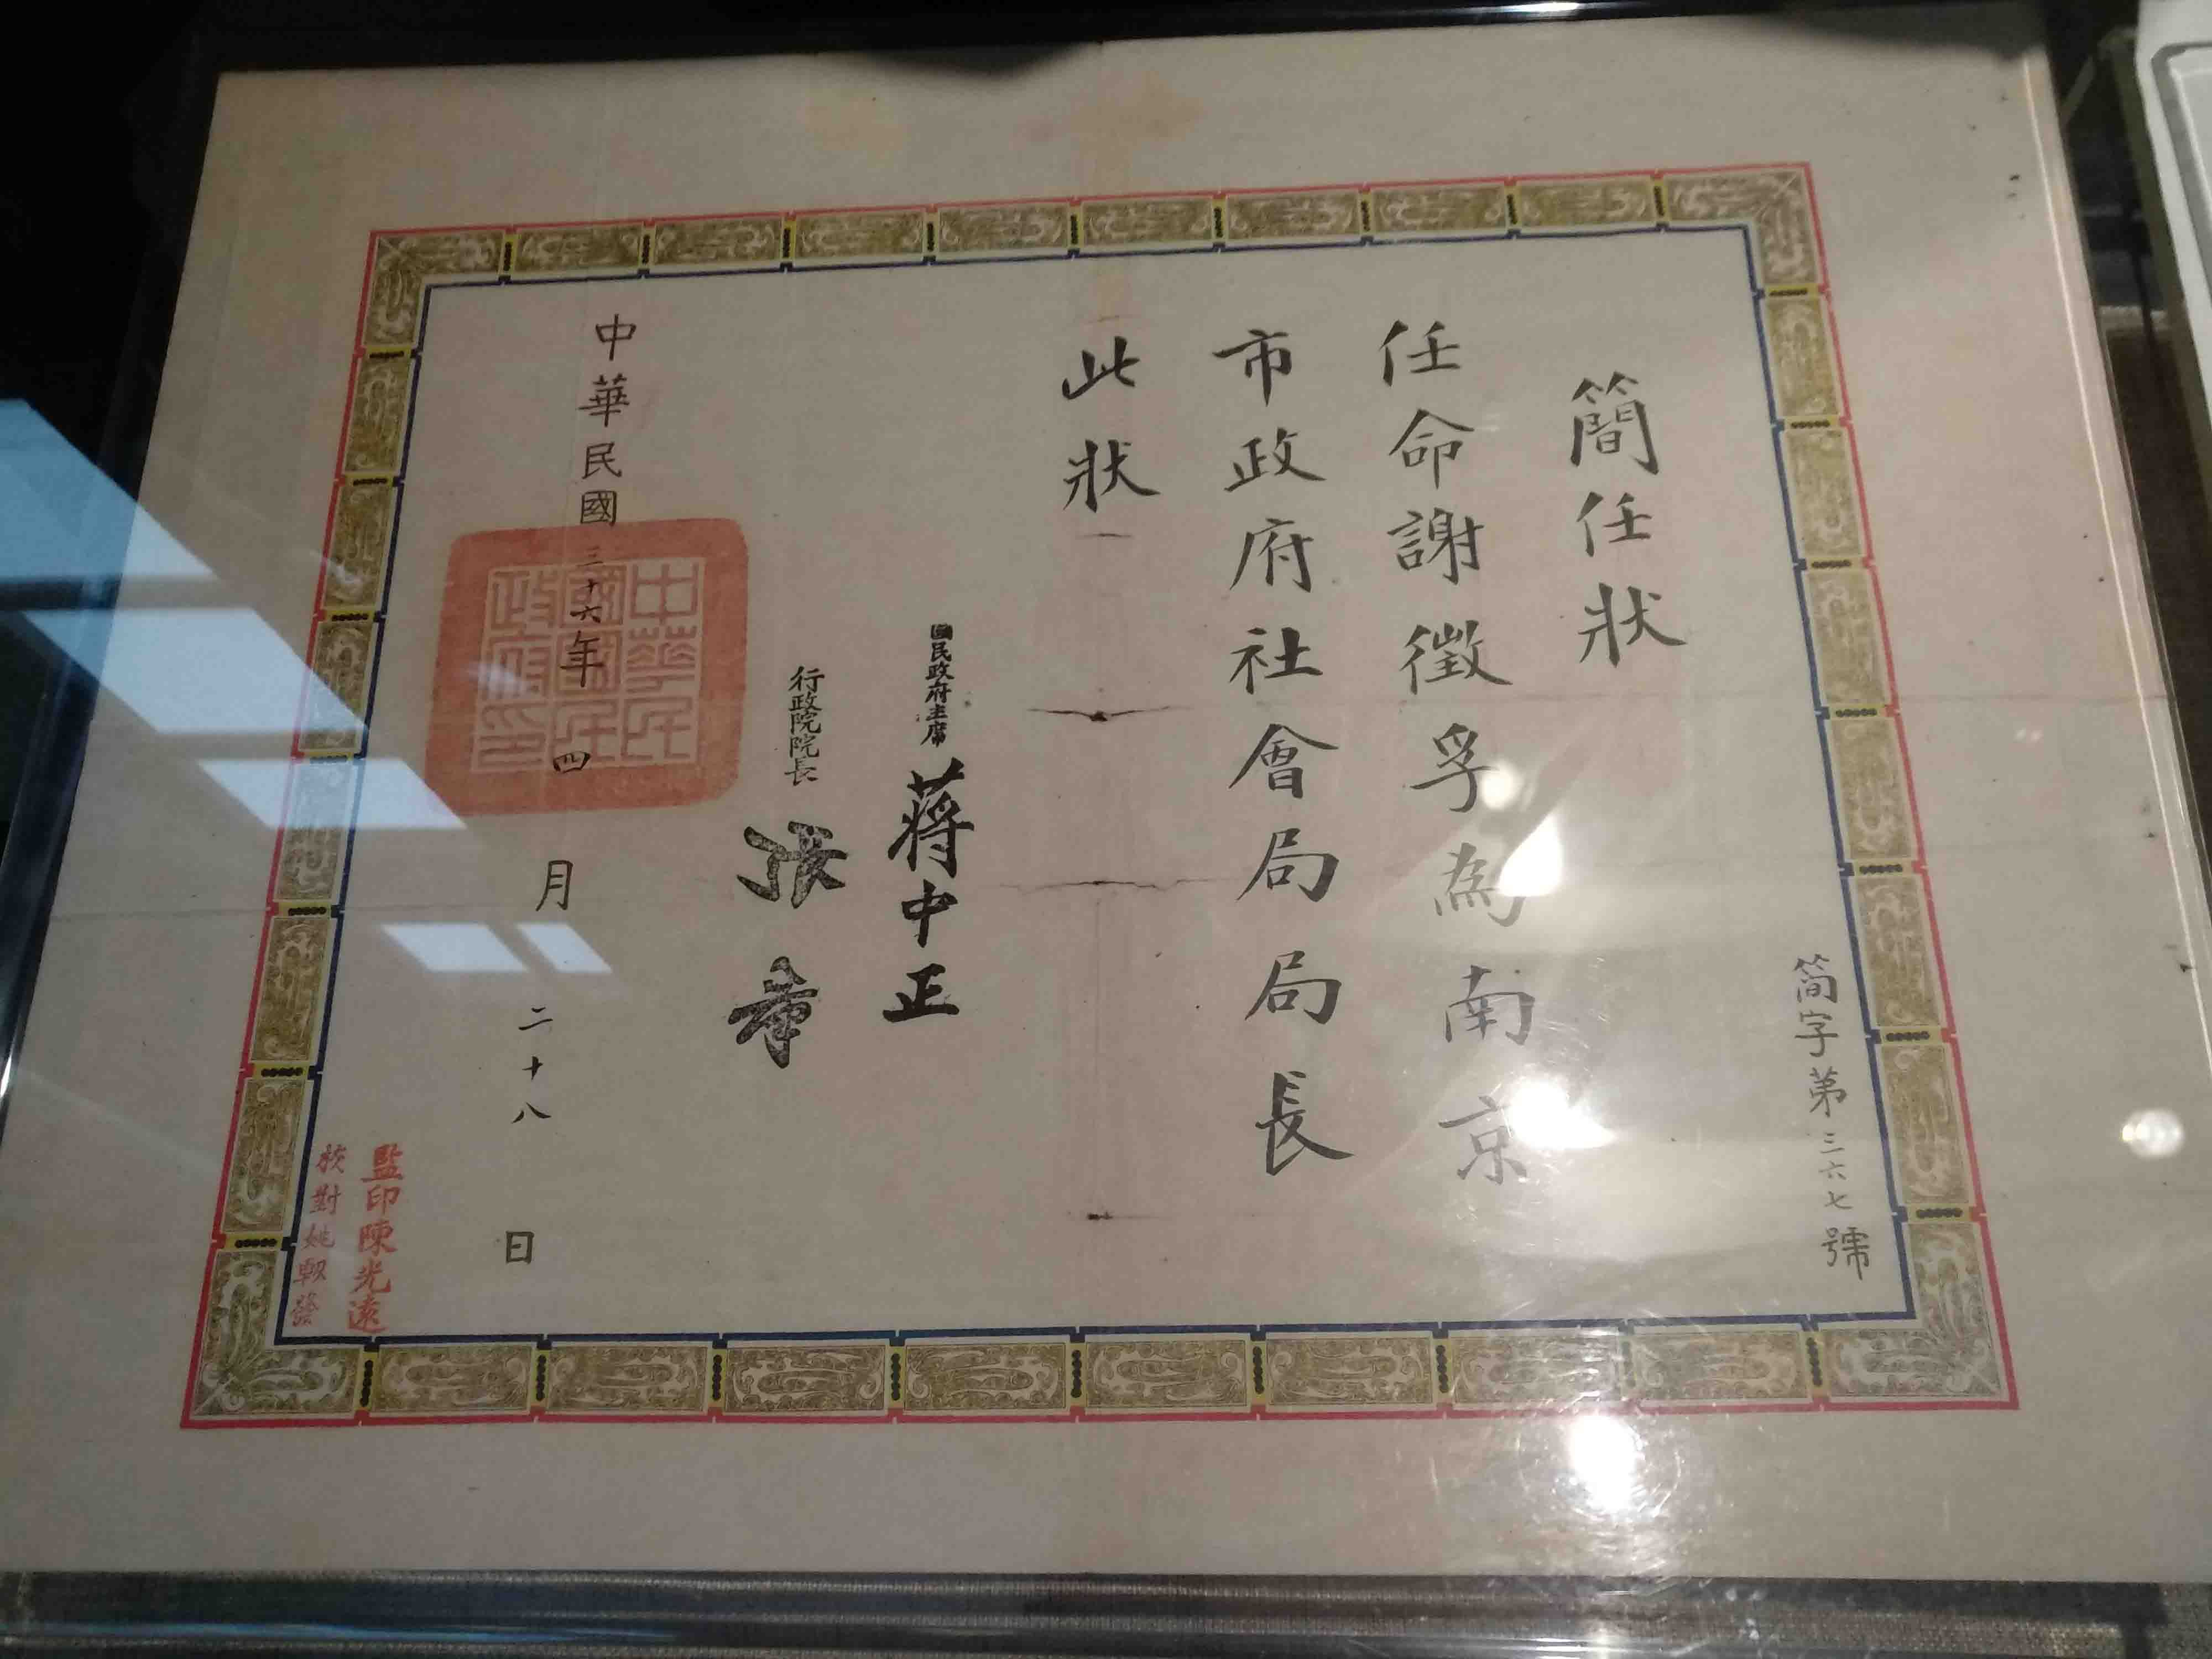 簡任狀
任命謝徵孚為南京
市政府社會局局長
此狀
國民政府主席 蔣中正
行政院院長 張羣
中華民國三十六年四月二十八日
中華民國國民政府印
簡字第三六七號
監印陳光遠
校對姚翱發